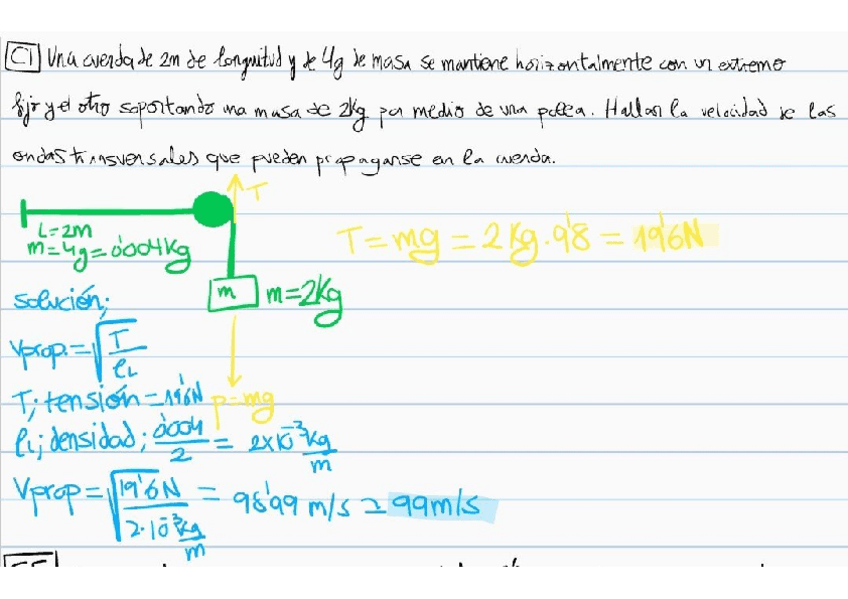 C1 Una cuerda de 2m de longuitud y de 4g de masa se mantiene horizontalmente con un extremo
fijo y el otro soportando una masa de 2kg por medio de una polea. Hallar la velocidad de las
ondas transversales que pueden propagarse en la cuerda.
T
L=2m
m=4g=0'004kg
T=mg=2kg·9'8=19'6N
m m=2kg
solución;
Vprop.=√(T/ρL)
p=mg
T; tensión=19'6N
ρL; densidad; 0'004/2 = 2x10⁻³kg/m
Vprop=√(19'6N/2·10⁻³kg/m) = 98'99 m/s ≃ 99m/s